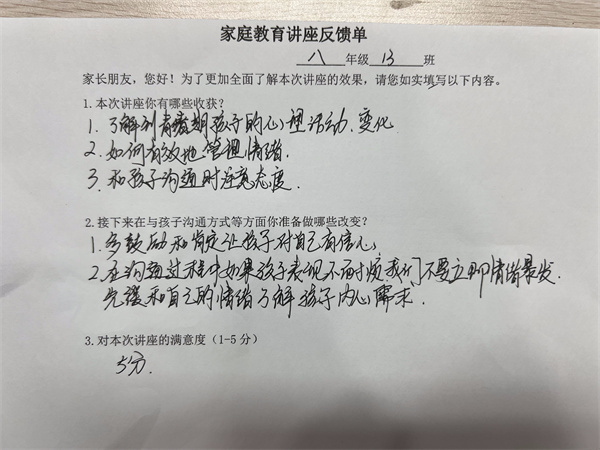 家庭教育讲座反馈单
八 年级 13 班
家长朋友，您好！为了更加全面了解本次讲座的效果，请您如实填写以下内容。
1.本次讲座你有哪些收获？
1. 了解到青春期孩子的心理活动、变化
2. 如何有效地管理情绪.
3. 和孩子沟通时注意态度.
2.接下来在与孩子沟通方式等方面你准备做哪些改变？
1. 多鼓励和肯定让孩子对自己有信心
2. 在沟通过程中如果孩子表现不耐烦我们不要立即情绪暴发.
先缓和自己的情绪了解孩子内心需求.
3.对本次讲座的满意度（1-5 分）
5分.